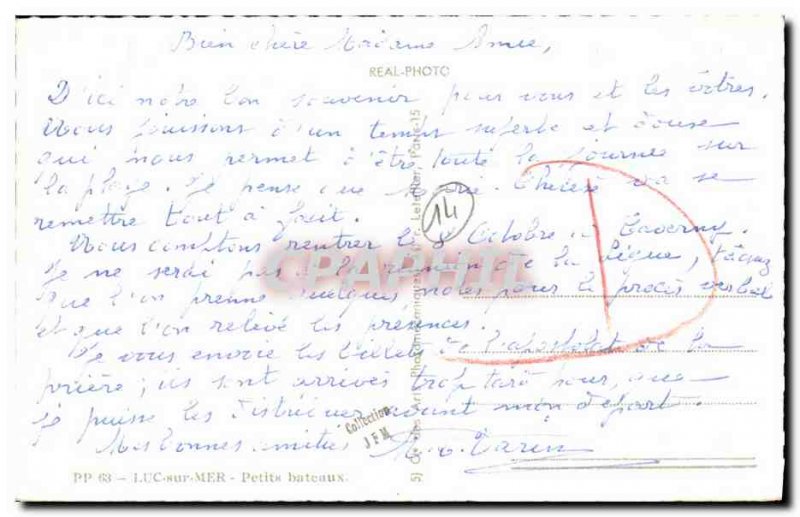 Bien chère Madame Amie,
REAL-PHOTO
D'ici notre bon souvenir pour vous et les vôtres.
Nous jouissons d'un temps superbe et douse
qui nous permet d'être toute la journée sur
la plage. Je pense que Marie-Thérèse va se
remettre tout à fait.
14
Nous comptons rentrer le 8 Octobre à Taverny.
Je ne serai pas à la réunion de la Ligue, tâchez
que l'on prenne quelques notes pour le procès verbal
et que l'on relève les présences.
Je vous envoie les billets de l'apostolat de la
prière; ils sont arrivés trop tard pour que
je puisse les distribuer avant mon départ.
Mes bonnes amitiés
Collection
J F M
PP 63 - LUC-sur-MER - Petits bateaux.
CPAPHIL